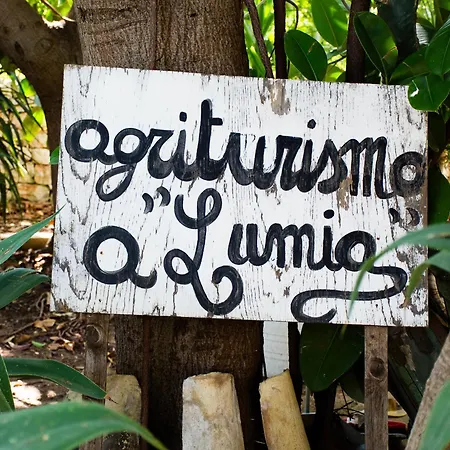 agriturismo
a "Lumia"